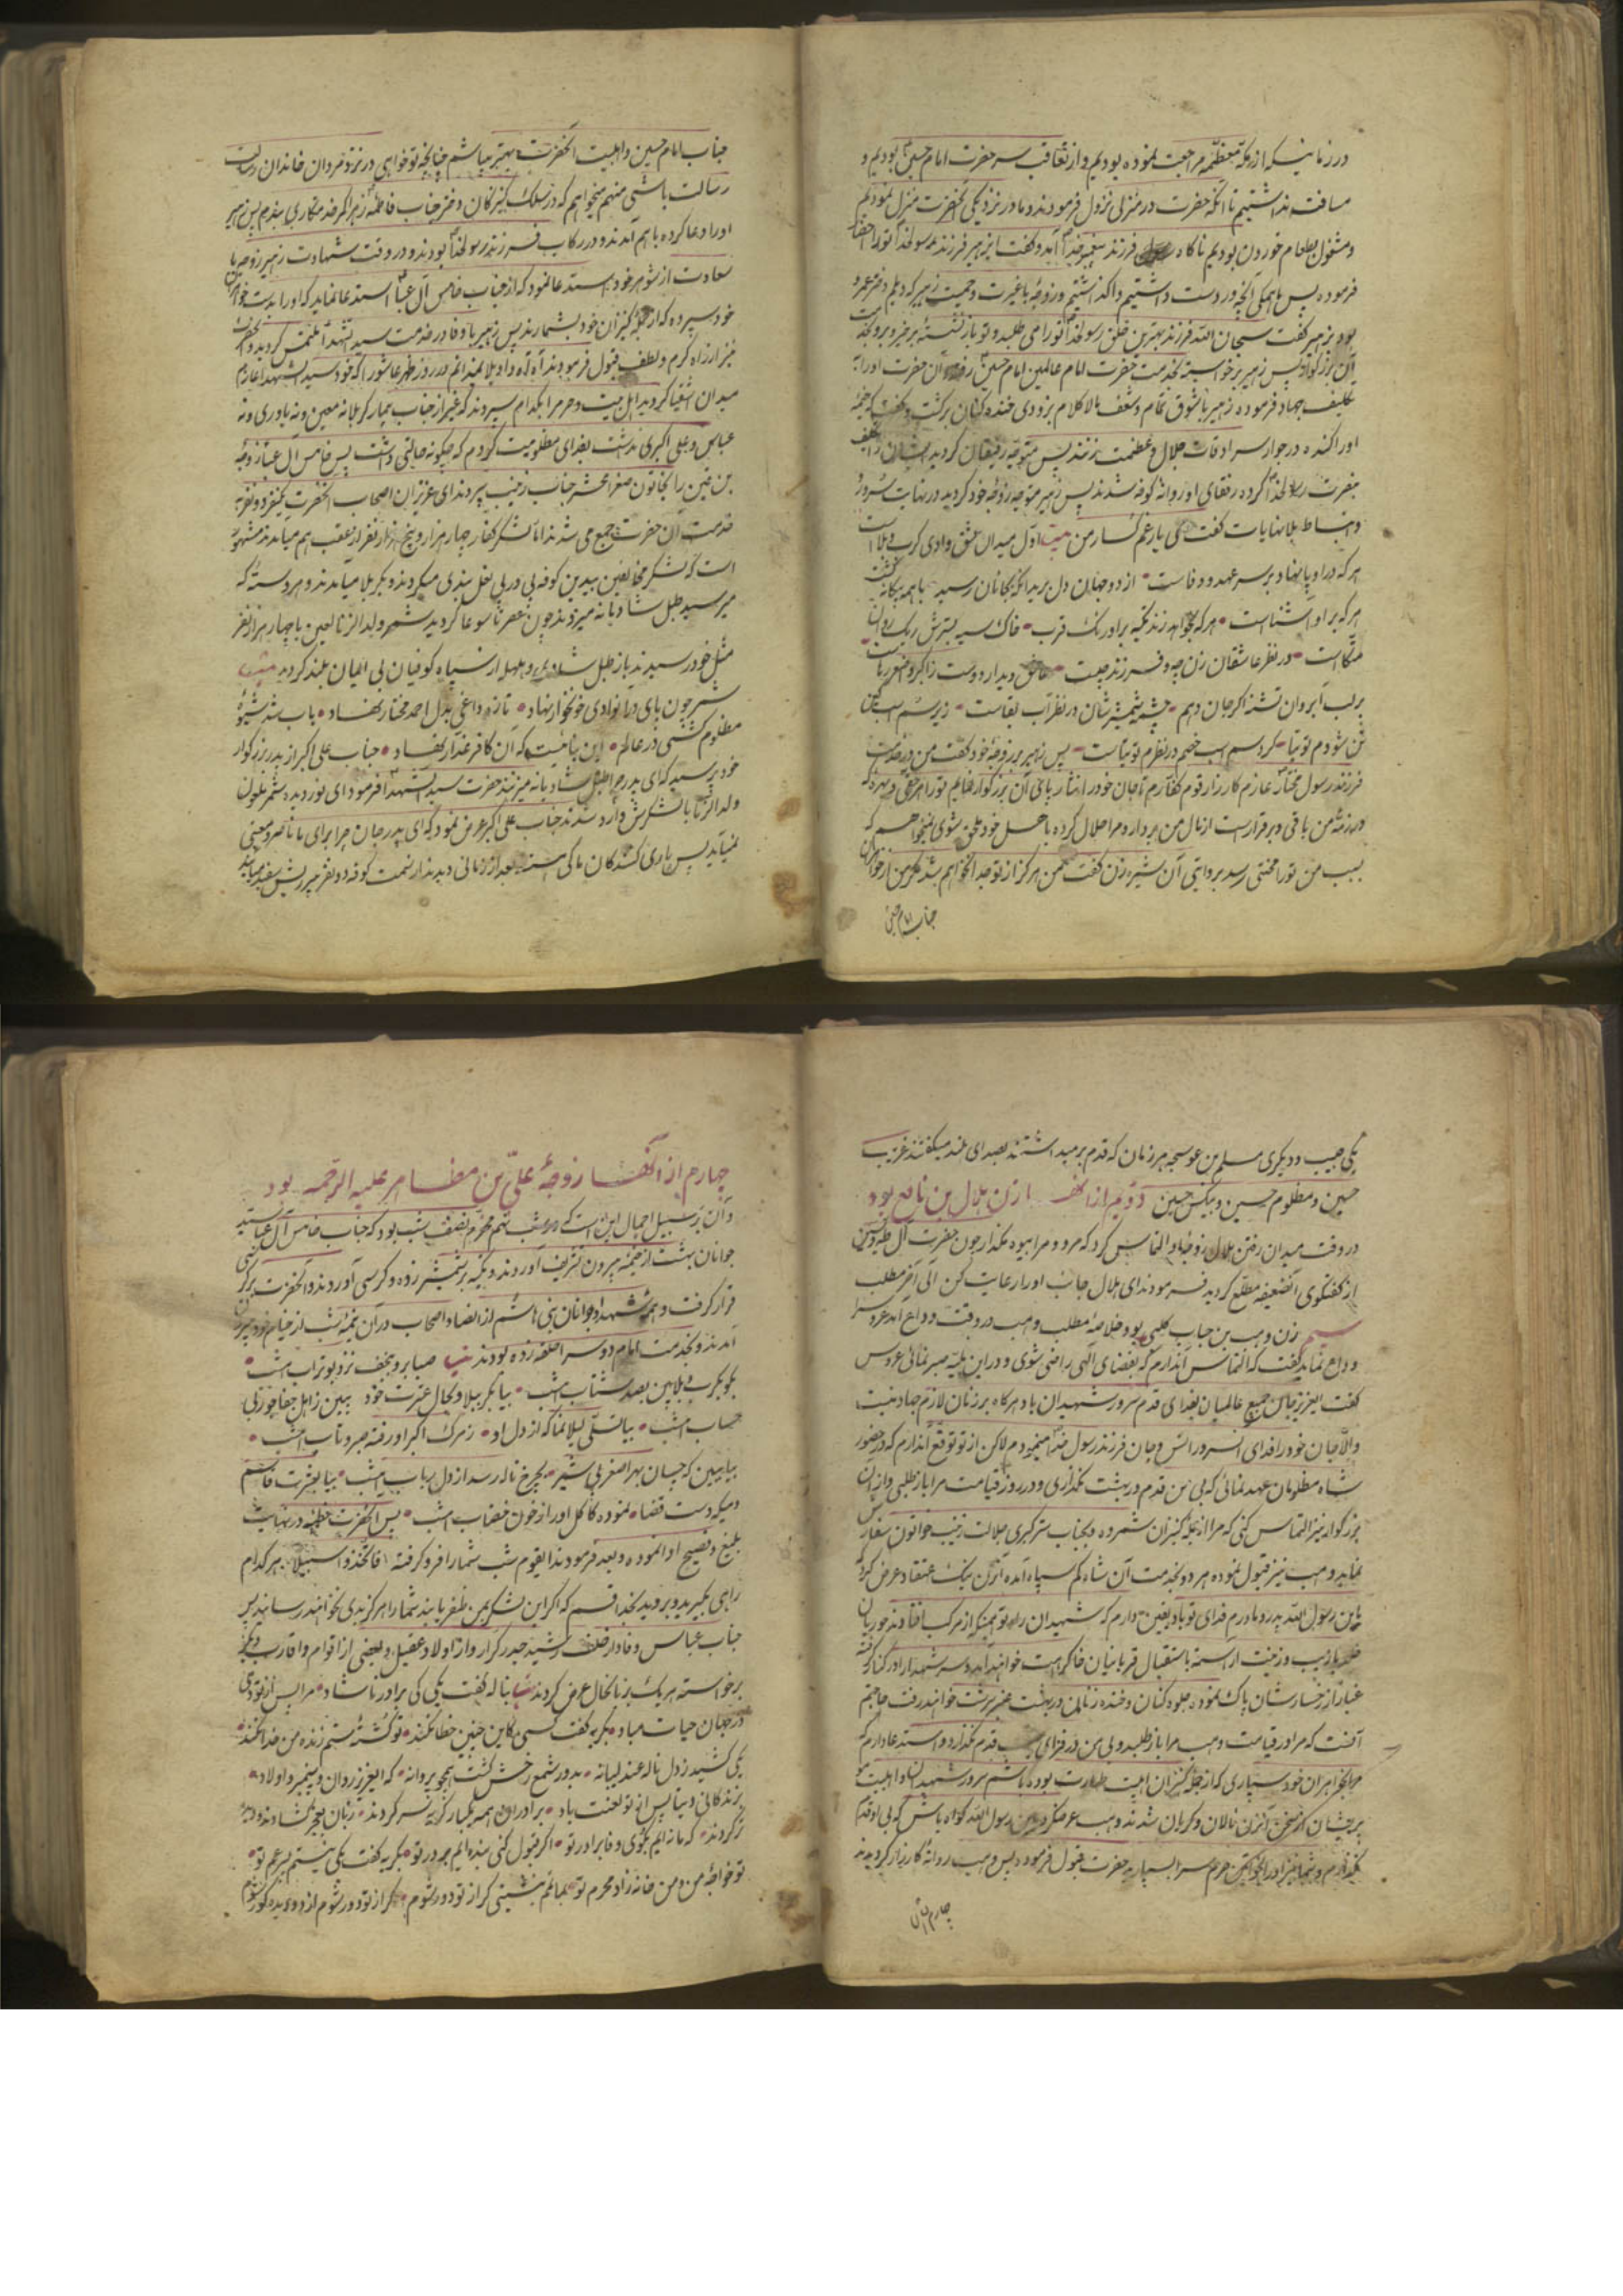 در زمانیکه از مکه معظمه مراجعت نموده بودیم و از تعاقب سر حضرت امام حسین بودیم و
مسافت نداشتیم تا آنکه حضرت در منزلی نزول فرمودند و ما در نزدیکی آنحضرت منزل نمودیم
و مشغول بطعام خوردن بودیم ناگاه رسول فرزند پیغمبر خدا آمد و گفت ای زهیر فرزند رسولخدا تو را احضار
فرموده پس ما همگی آنچه در دست داشتیم واگذاشتیم و زوجه با غیرت و حمیت زهیر که دیلم دختر عمرو
بود بزهیر گفت سبحان الله فرزند بهترین خلق رسولخدا تو را می طلبد و تو باز نشسته برخیز و برو بخدمت
آن بزرگوار پس زهیر برخواسته بخدمت حضرت امام عالمین امام حسین رفته آن حضرت او را
تکلیف بجهاد فرموده زهیر با شوق تمام و شعف مالا کلام بزودی خنده کنان برگشت و گفت که خیمه
او را کنده در جوار سرادقات جلال و عظمت زنند پس متوجه رفیقان گردید ایشان را تکلیف
بنصرت رسولخدا کرده رفقای او روانه کوفه شدند پس زهیر متوجه زوجه خود گردید در نهایت سرور
و انبساط بلا نهایات گفت کی یار غمگسار من بیت اول میدان عشق وادی کرب و بلا است
هر که در او پا نهاد بر سر عهد و وفاست از دو جهان دل برید آنکه بجانان رسید با همه بیگانه گشت
هر که بر او آشناست هر که بخواهد زند تکیه بر اورنک قرب خاک سیه بسترش ریک روان
متکاست در نظر عاشقان زن چه و فرزند چیست عاشق دیدار دوست زاکبر و اصغر رهاست
بر لب آب روان تشنه اگر جان دهم چشمه شمشیرشان در نظر آب بقاست زیر سم اسب کین
تن شودم توتیا گرد سم اسب خصم در نظرم توتیاست پس زهیر بر زوجه خود گفت من در خدمت
فرزند رسول مختار عازم کارزار قوم کفارم تا جان خود را نثار پای آن بزرگوار نمایم تو را هر حقی و بهره که
در ذمه من باقی و برقرار است از مال من بردار و مرا حلال کرده باهل خود ملحق شوی نمیخواهم که
بسبب من تو را محنتی رسد بروایتی آن شیر زن گفت من هرگز از تو جدا نخواهم شد مگر من از خواهران
جناب امام حسین
جناب امام حسین و اهلبیت آنحضرت بهتر میباشم چنانچه تو خواهی در نزد مردان خاندان رسالت
رسالت باشی منهم میخواهم که در سلک کنیزکان دختر جناب فاطمه زهرا کمر خدمتکاری بندم پس زهیر
او را دعا کرده باهم آمدند و در رکاب فرزند رسولخدا بودند و در وقت شهادت زهیر زوجه با
سعادت از شوهر خود استدعا نمود که از جناب خامس آل عبا استدعا نماید که او را بدست خواهران
خود سپرده که از جمله کنیزان خود بشمارند پس زهیر با وفا در خدمت سید الشهدا ملتمس گردید و آنحضرت
نیز از راه کرم و لطف قبول فرمودند آه آه واویلا نمیدانم در روز ظهر عاشورا که خود سید الشهدا عازم
میدان اشقیا گردید اهل بیت و حرم را بکدام سپردند که غیر از جناب بیمار کربلا نه معین و نه یاوری و نه
عباس و علی اکبری نداشت بفدای مظلومیت گردم که چگونه حالتی داشت پس خامس آل عبا زوجه
بن قین را بخاتون صغرا محشر جناب زینب سپردند ای عزیزان اصحاب آنحضرت یکنفر دو نفر به
خدمت آن حضرت جمع می شدند اما لشکر کفار چهار هزار و پنج هزار نفر از عقب هم میامدند مشهور
است که لشکر مخالفین بیدین کوفه پی در پی نعل بندی میکردند و بکربلا میامدند و هر دسته که
میرسید طبل شادیانه میزدند چون عصر تاسوعا گردید شمر ولد الزنا لعین با چهار هزار نفر
مثل خود رسیدند باز طبل شادی و هلهله از سپاه کوفیان بی ایمان بلند گردید بیت
شمر چون پای در آنوادی خونخوار نهاد تازه داغی بدل احمد مختار نهاد باب شد شیوه
مظلوم کشی در عالم این بنائیست که آن کافر غدار نهاد جناب علی اکبر از پدر بزرگوار
خود پرسید که ای پدر چرا طبل شادیانه میزنند حضرت سید الشهدا فرمود ای نور دیده شمر ملعون
ولد الزنا با لشکرش وارد شدند جناب علی اکبر عرض نمود که ای پدر جان چرا برای ما ناصر و معینی
نمیآید پس یاری کنندگان ما کی هستند بعد از زمانی دیدند از سمت کوفه دو نفر پیر ریش سفید میآیند
یکی حبیب و دیگری مسلم بن عوسجه هر زمان که قدم برمیداشتند بصدای بلند میگفتند غریب
حسین و مظلوم حسین و بیکس حسین دویم از آنها زن هلال بن نافع بود
در وقت میدان رفتن هلال زوجه او التماس کرد که مرو و مرا بیوه مگذار چون حضرت آل طه و یس
از گفتگوی آنضعیفه مطلع گردید فرمودند ای هلال جانب او را رعایت کن الی آخر مطلب
سیم زن وهب بن جناب کلبی بود خلاصه مطلب وهب در وقت وداع آمد عروس را
وداع نماید گفت که التماس آندارم که بقضای الهی راضی شوی و در این بلیه صبر نمائی عروس
گفت ای عزیز جان جمیع عالمیان بفدای قدم سرور شهیدان باد هر گاه بر زنان لازم جهاد نیست
و الا جان خود را فدای آنسرور انس و جان فرزند رسول خدا مینمودم لاکن از تو توقع آندارم که در حضور
شاه مظلومان عهد نمائی که بی من قدم در بهشت نگذاری و در روز قیامت مرا باز طلبی و از آن
بزرگوار نیز التماس کنی که مرا از جمله کنیزان شمرده و بجناب ستر کبری جلالت زینب خواتون سفارش
نماید وهب نیز قبول نموده هر دو بخدمت آن شاه کم سپاه آمده آنزن نیک اعتقاد عرض کرد
یابن رسول الله پدر و مادرم فدای تو باد یقین دارم که شهیدان راه تو همینکه از مرکب افتادند حوریان
خلد با زیب و زینت آراسته باستقبال قربانیان خاک راهت خواهند آمد و سر شهدا را در کنار گرفته
غبار از رخسارشان پاک نموده جلوه کنان و خنده زنان در بهشت عنبر سرشت خواهند رفت حاجتم
آنست که مرا در قیامت وهب مرا باز طلبد و بی من در فردای بهشت قدم نگذارد و استدعا دارم که
مرا بخواهران خود سپاری که از جمله کنیزان اهلبیت طهارت بوده باشم سرور شهیدان و اهلبیت
پریشان از سخن آنزن نالان و گریان شدند وهب عرض کرد یابن رسول الله گواه باش که بی او قدم
نگذارم و شما نیز او را بخواتین حرم سرا بسپارید حضرت قبول فرموده پس وهب روانه کارزار گردیدند
چهارم از آن
چهارم از آنها زوجه علی بن مظاهر علیه الرحمه بود
و آن بر سبیل اجمال این است که در شب نهم محرم نصف شب بود که جناب خامس آل عبا سید
جوانان بهشت از خیمه بیرون تشریف آوردند و تکیه بر شمشیر زده و کرسی آوردند و آنحضرت بر کرسی
قرار گرفت و همه شهدا و جوانان بنی هاشم از انصار و اصحاب در آن نیمه شب از خیام خود بیرون
آمدند و بخدمت امام دو سرا حلقه زده بودند بیت صبا برو بنجف نزد بوتراب امشب
بگو بکرب و بلا بین بصد شتاب امشب بیا بکربلا و بحال عترت خود ببین ز اهل جفا جور بی
حساب امشب بیا تسلی لیلا نما که از دل او ز مرک اکبر او رفته صبر و تاب امشب
بیا ببین که چسان بهر اصغر بی شیر بچرخ ناله رسد از دل رباب امشب بیا بعشرت قاسم
و میکه دست قضا نموده کاکل او را ز خون خضاب امشب پس آنحضرت خطبه در نهایت
بلیغ و فصیح ادا نموده و بعد فرمودند ایقوم شب شما را فرو گرفته فاتخذوا سبیلا هر کدام
راهی بگیرید و بروید بخدا قسم که اگر این لشکر بمن ظفر یابند شما را هرگز بدی نخواهند رسانید پس
جناب عباس وفادار خلف رشید حیدر کرار و از اولاد عقیل و بعضی از اقوام و اقارب دیگر
برخواسته هر یک بزبانحال عرض کردند بیت بناله گفت یکی کی برادر ناشاد مرا پس از تو دمی
در جهان حیات مباد بگریه گفت کسی کاین چنین خطا نکند تو کشته ستم زنده من خدا نکند
یکی کشید ز دل ناله عندلیبانه بدور شمع رخش گشت همچو پروانه که ای عزیز روان و پیمبر و اولاد
بزندگانی دنیا پس از تو لعنت باد برادران همه یکبار گریه سر کردند زبان بعجز گشادند و دیده
تر کردند که مانده ایم بکوی وفا برادر تو اگر قبول کنی بنده ایم بر در تو بگریه گفت یکی نیستم پسر عم تو
تو خواجه من و من خانه زاد محرم تو بماتمم بنشینی گر از تو دور شوم گر از تو دور شوم از دو دیده کور شوم